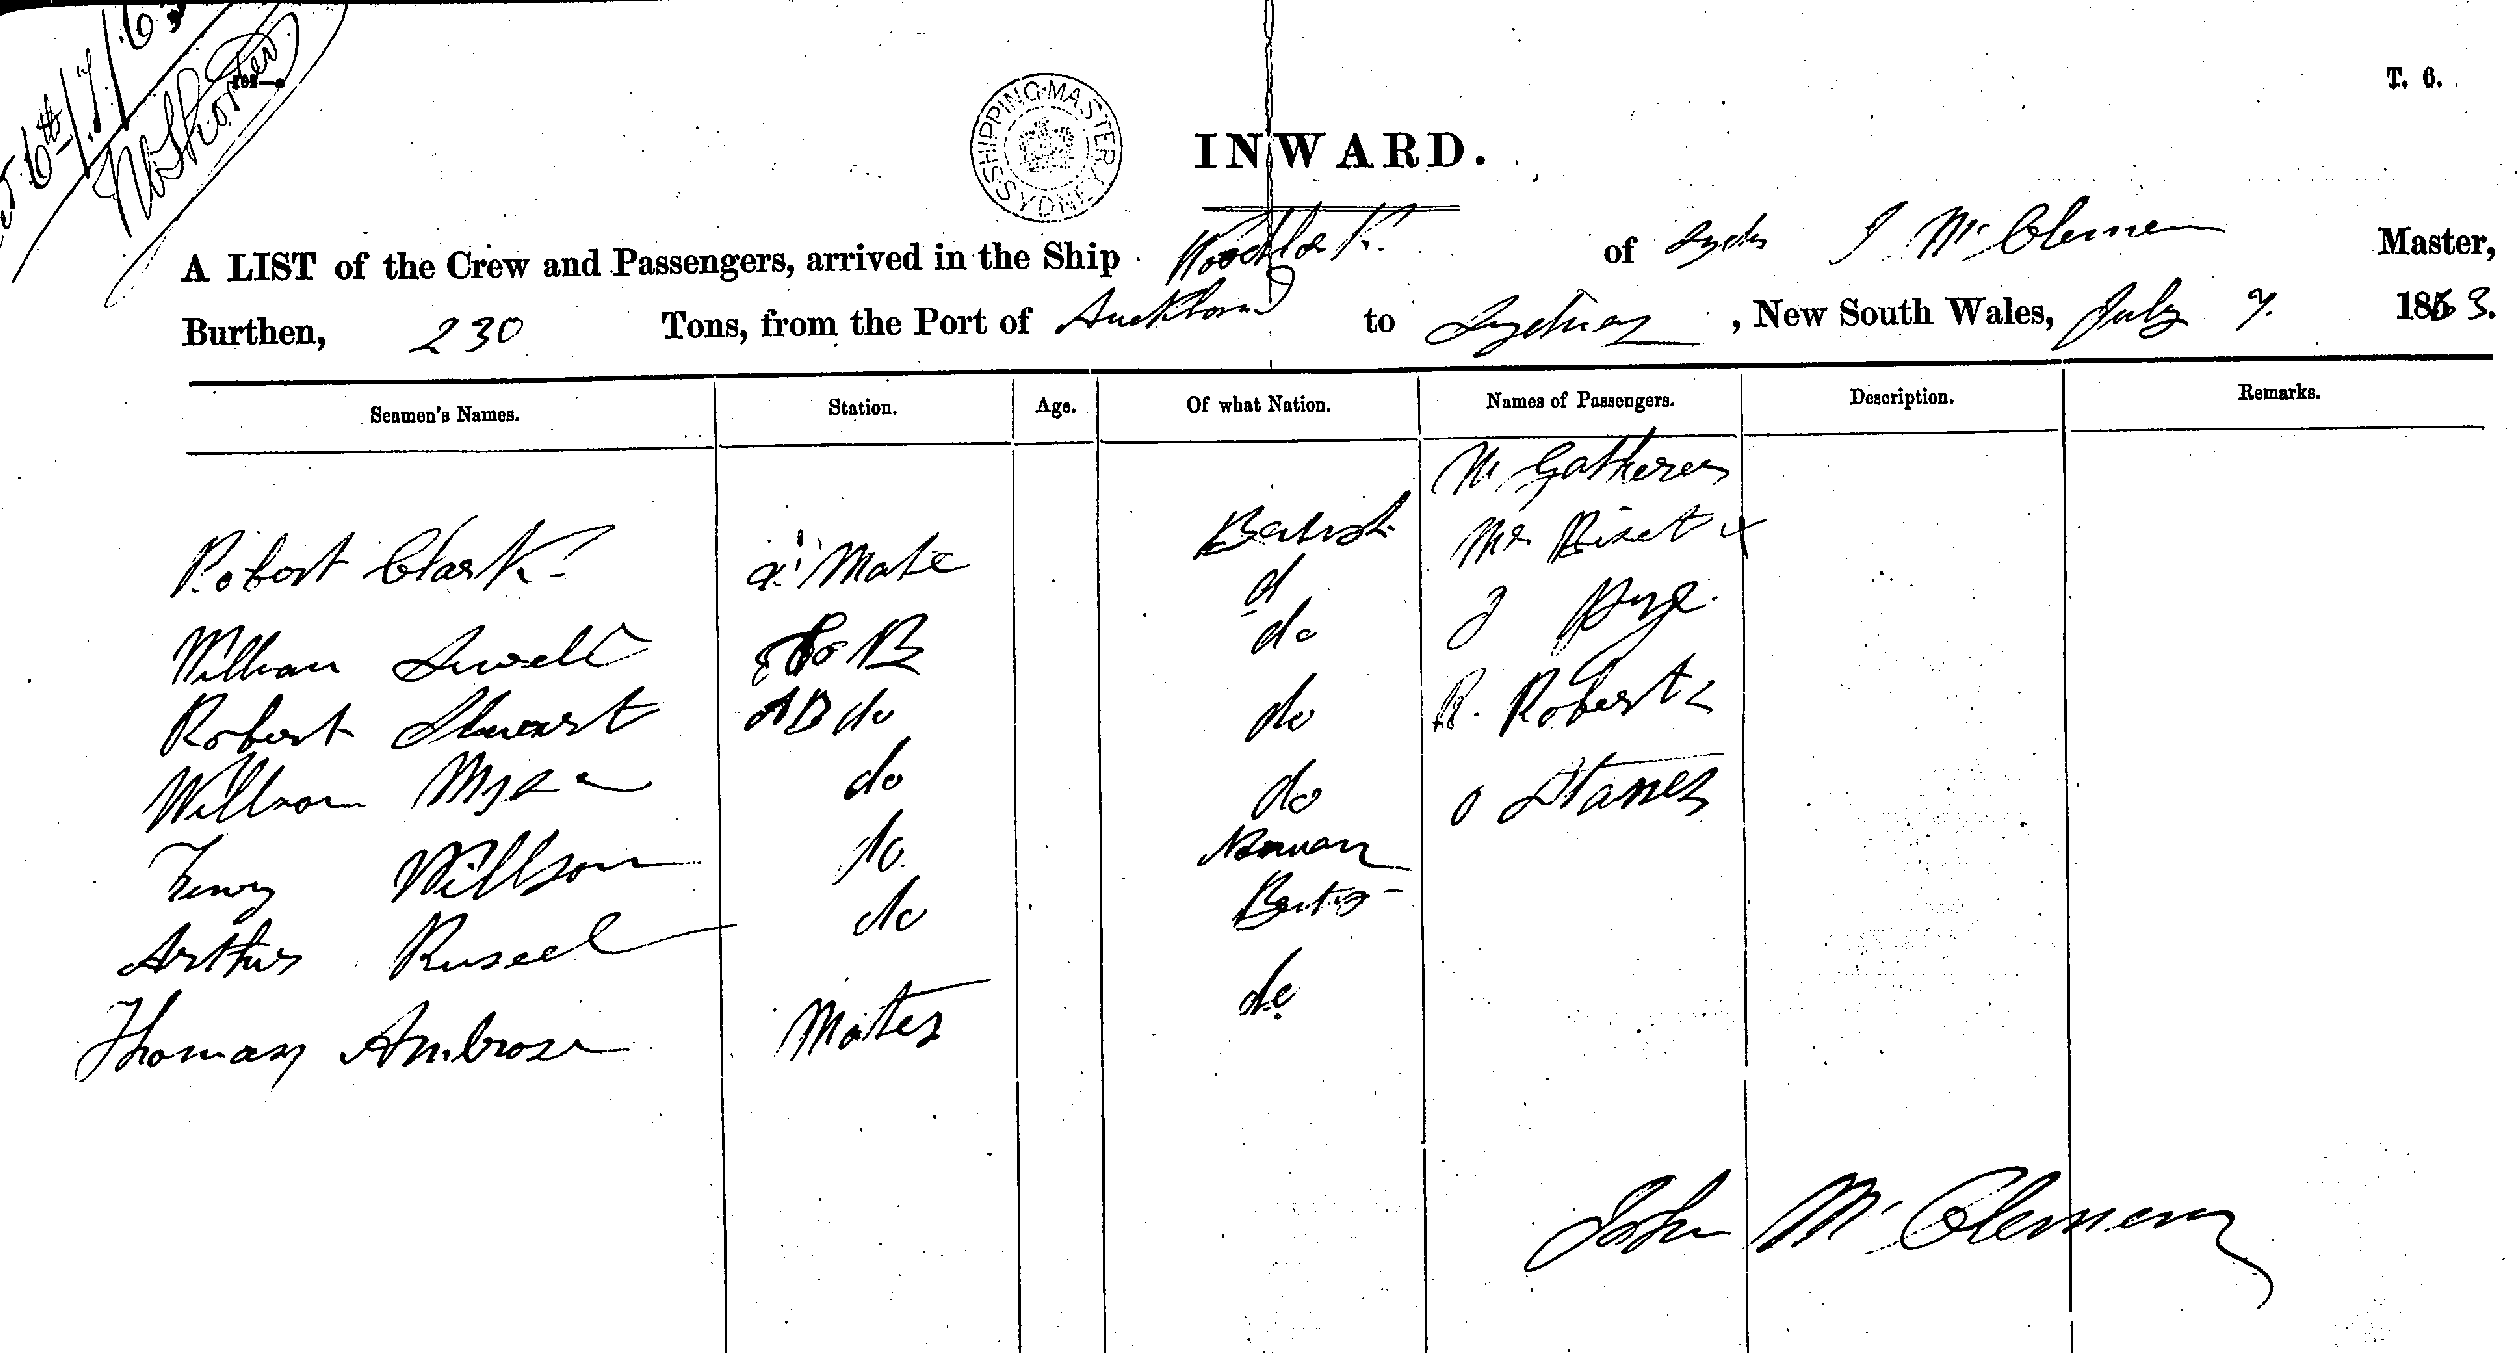 6th/7/63
T. 6.
SHIPPING MASTER SYDNEY
INWARD.
A LIST of the Crew and Passengers, arrived in the Ship Woodlark of Sydn J McClemen Master,
Burthen, 230 Tons, from the Port of Auckland to Sydney, New South Wales, July 7. 1863.
Seamen's Names. Station. Age. Of what Nation. Names of Passengers. Description. Remarks.
Mr Gatherer
Robert Clark Mate British Mr Biset
d J Pye
William Sewell B do
Robert Stuart AB do do R. Roberts
William do do O Stanes
Henry Willson do
Arthur Russel do British
Thomas Ambrose Mates do
John McClemen